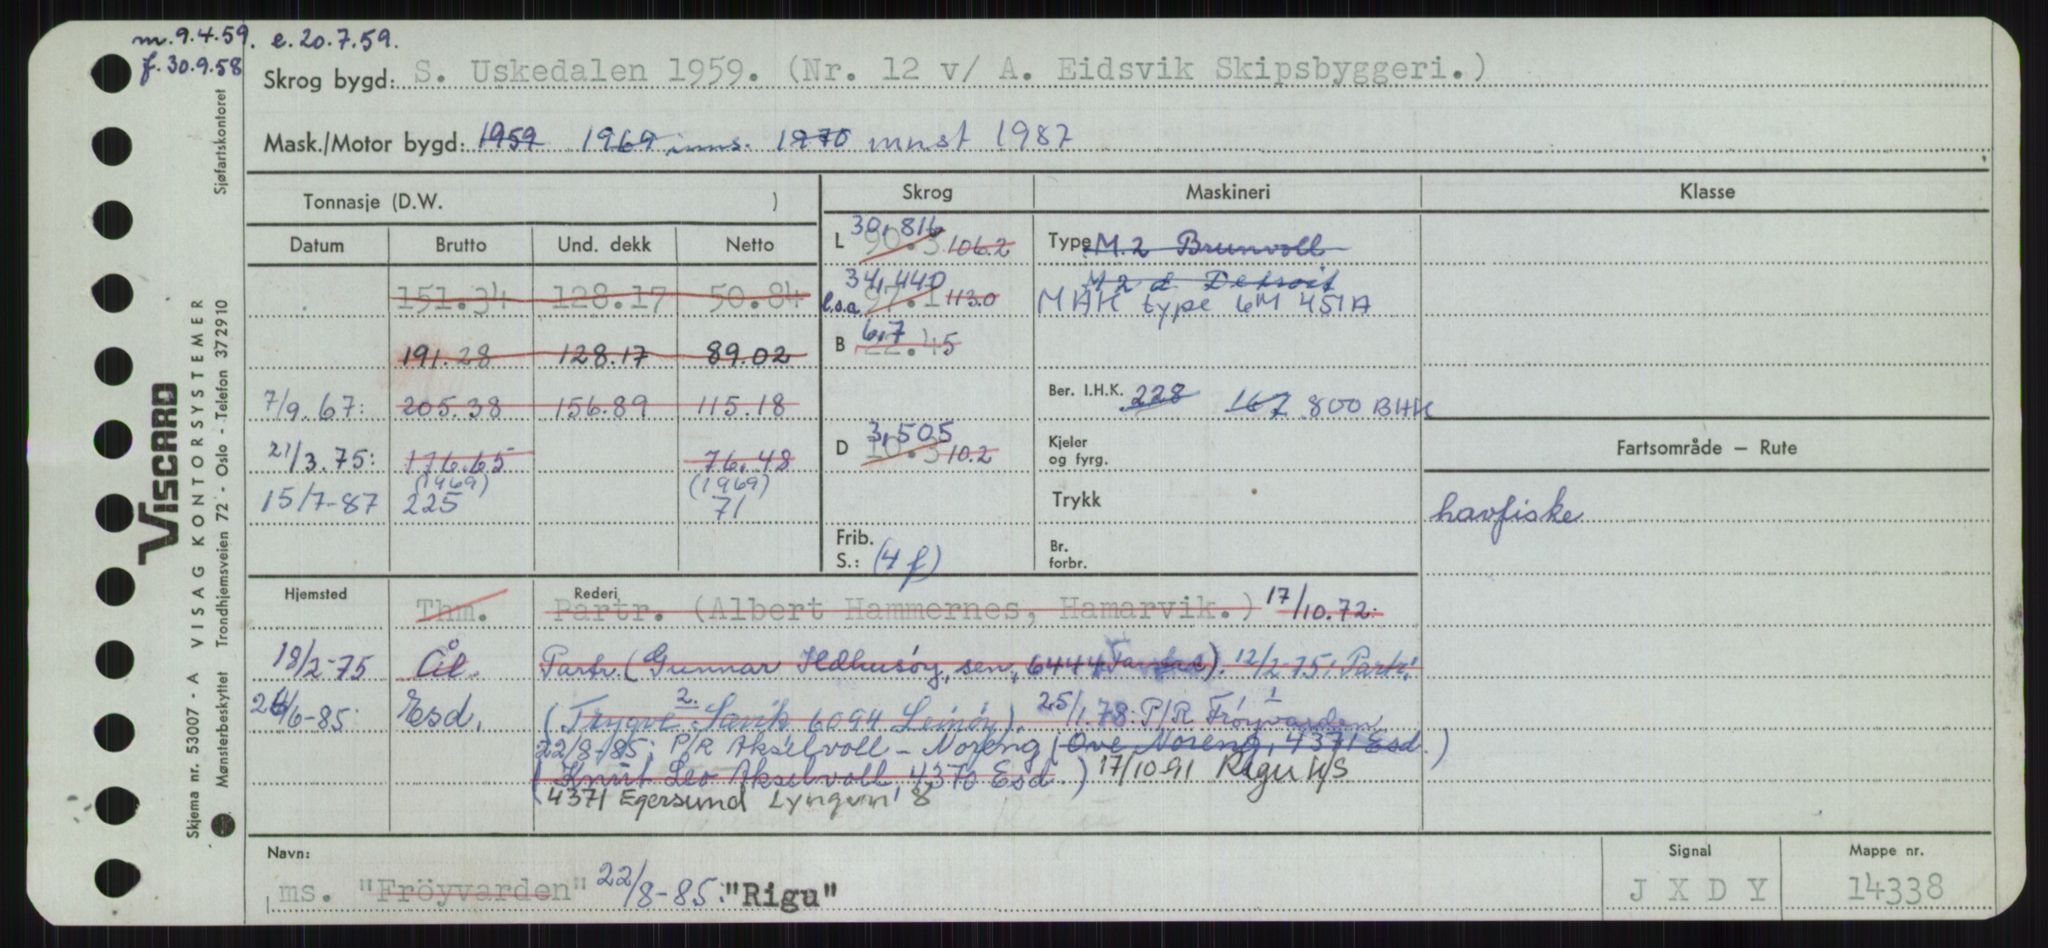 m. 9.4.59. e. 20.7.59.
f. 30.9.58
Skrog bygd: S. Uskedalen 1959. (Nr. 12 v/ A. Eidsvik Skipsbyggeri.)
Mask./Motor bygd: 1959 1969 inns. 1970 mnst 1987
Tonnasje (D.W. ) Skrog Maskineri Klasse
Datum Brutto Und. dekk Netto
L 90.3 30,816 106.2 Type M.2 Brunvoll
M 2 d Detroit
151.34 128.17 50.84 l.o.a. 97.1 34,440 113.0 MAK type 6M 451A
191.28 128.17 89.02 B 22.45 6,7
7/9.67: 205.38 156.89 115.18 Ber. I.H.K. 228 167 800 BHK
21/3.75: 176.65 76.48 D 10.3 3,505 10.2 Kjeler og fyrg. Fartsområde — Rute
(1969) (1969)
15/7-87 225 71 Trykk havfiske
Frib. S.: (4 f) Br. forbr.
Hjemsted Rederi
Thm. Partr. (Albert Hammernes, Hamarvik.) 17/10.72:
18/2-75 Ål. Partr. (Gunnar Ildhusøy, sen., 6444 Farstad). 12/2-75: Partr.
26/6-85: Esd. (Trygve Sævik 6094 Leinøy). 25/1.78: P/R Frøyvarden
22/8-85: P/R Akselvoll - Noreng (Ove Noreng, 4371 Esd.)
(Knut Leo Akselvoll, 4370 Esd.) 17/10 91 Rigu A/S
4371 Egersund Lyngvn 8
Navn: Signal Mappe nr.
ms. "Fröyvarden" 22/8-85: "Rigu" J X D Y 14338
Skjema nr. 53007 - A VISAG KONTORSYSTEMER Sjøfartskontoret
Mønsterbeskyttet Trondhjemsveien 72 - Oslo - Telefon 37 29 10
VISCARD